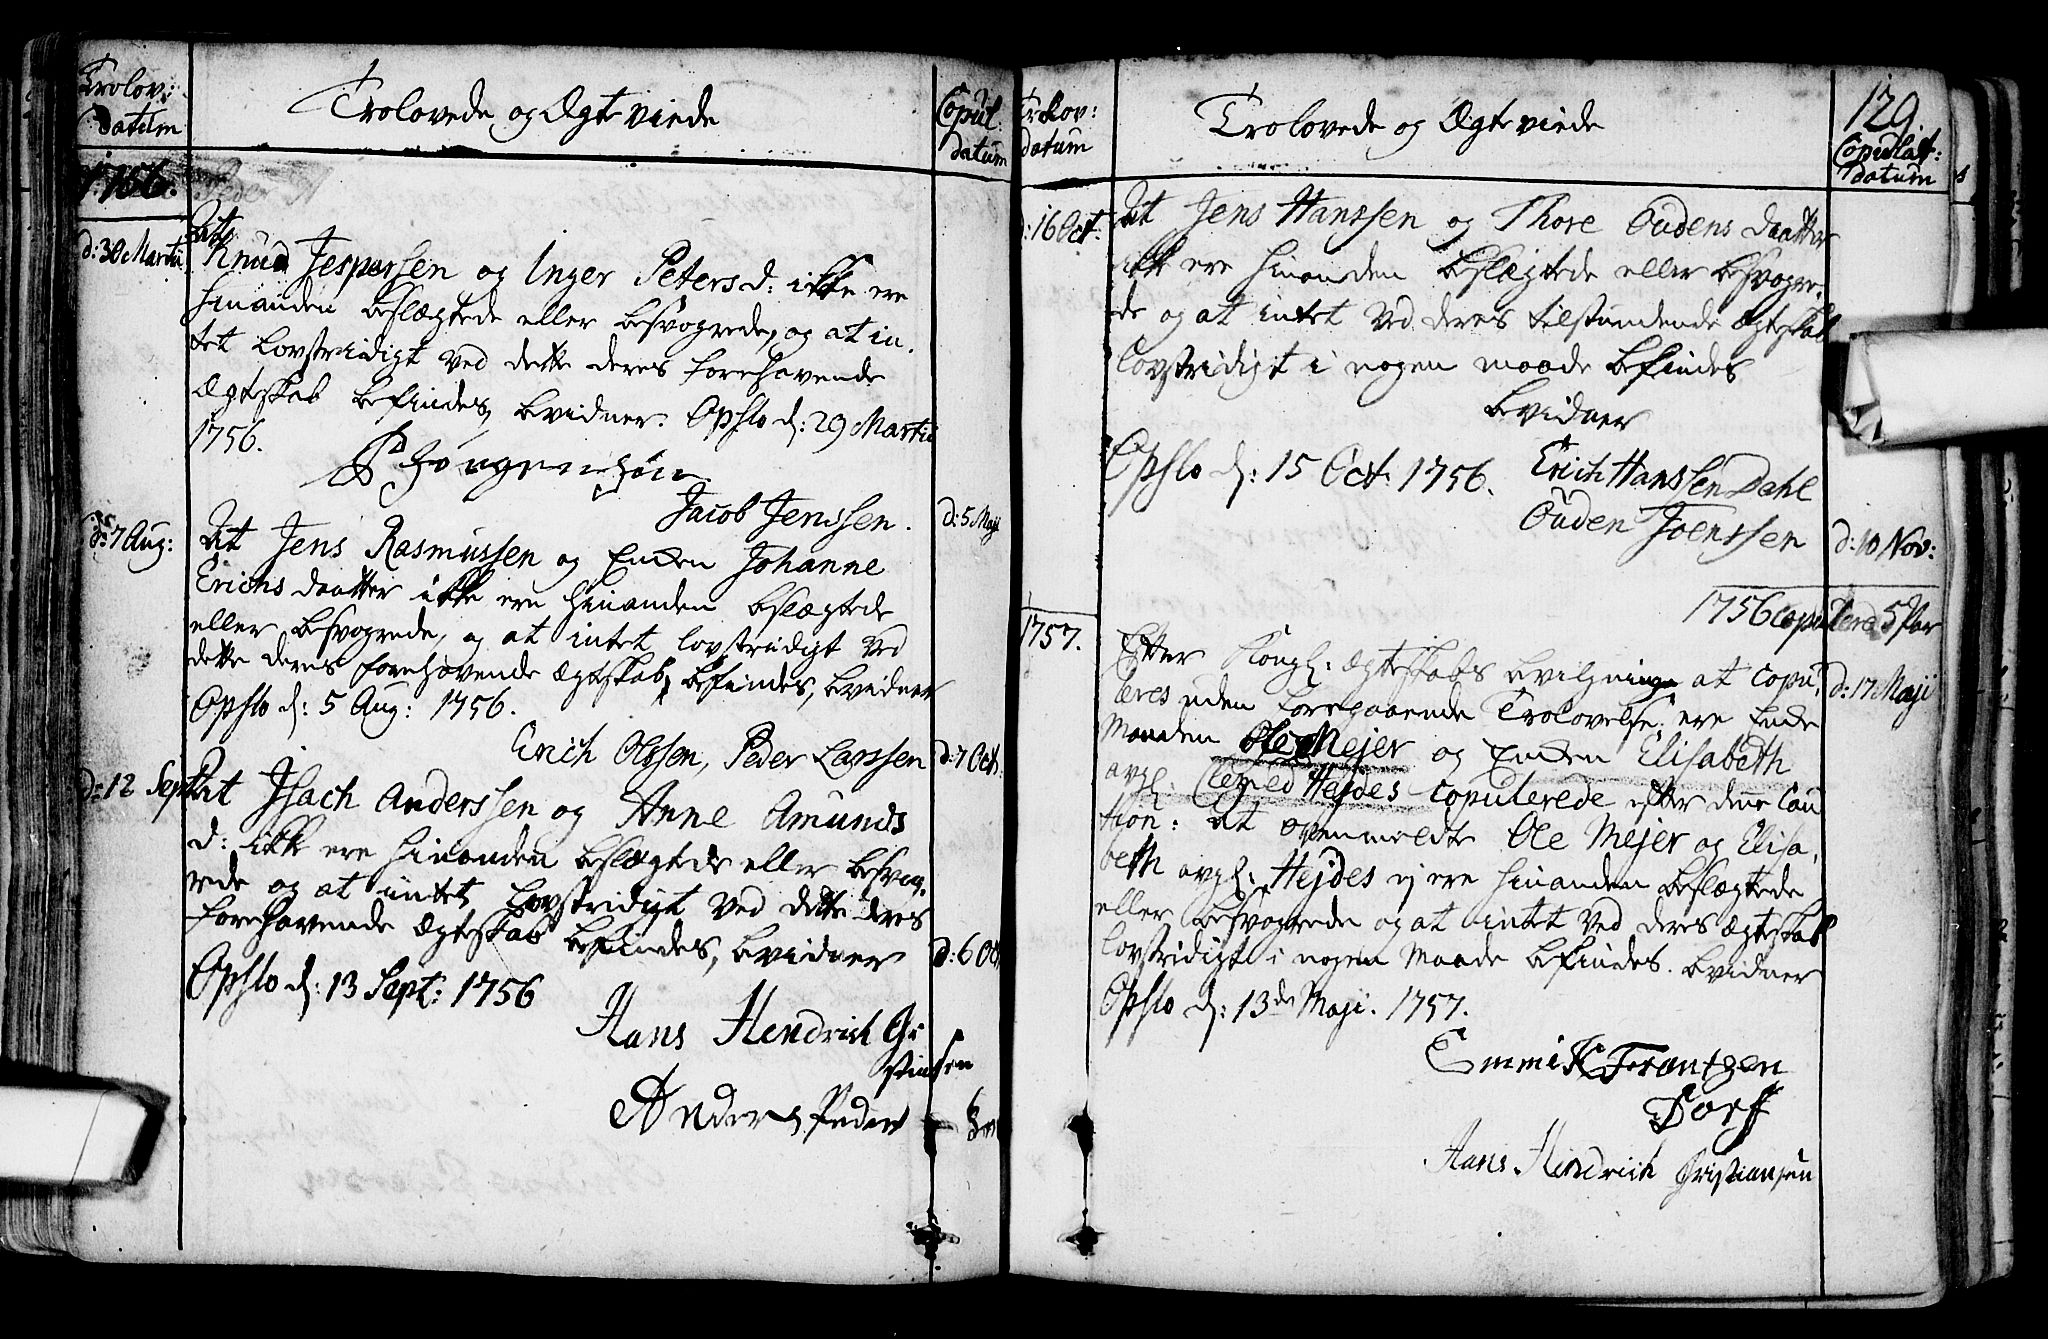 Trolov:
datum
Trolovede og Ægte viede
Copul.
datum
1756.
d: 30 Martii
At
Knud Jespersen og Inger Peters d: ikke ere
hinanden beslægtede eller besvogrede, og at in-
tet lovstridigt ved dette deres forehavende
Ægteskab befindes, bevidner. Opslo d: 29 Martii
1756.
Jacob Jenssen.
d: 5 Maji
d: 7 Aug:
At Jens Rasmussen og Enken Johanne
Erichs daatter ikke ere hinanden beslægtede
eller besvogrede, og at intet lovstridigt ved
dette deres forehavende Ægteskab befindes, bevidner
Opslo d: 5 Aug: 1756.
Erich Olssen, Peder Larssen
d: 7 Oct.
d: 12 Sept
At Isach Anderssen og Anne Amunds
d: ikke ere hinanden beslægtede eller besvog-
rede og at intet lovstridigt ved dette deres
forehavende Ægteskab befindes, bevidner
d: 6 Oct
Opslo d: 13 Sept: 1756
Hans Hendrich Cri
stiansen
Anders Peder
sen
Trolov:
datum
Trolovede og Ægte viede
129.
Copulat:
datum
d: 16 Oct:
At Jens Hanssen og Thore Oudens daatter
ikke ere hinanden beslægtede eller besvogre-
de og at intet ved deres tilstundende Ægteskab
lovstridigt i nogen maade befindes
bevidner
Opslo d: 15 Oct. 1756. Erich Hanssen Dahl
Ouden Joenssen
d: 10 Nov:
1756 copulered 5 Par
1757.
Efter Kongl: Ægteskabs bevilgning at copu-
leres uden foregaaende Trolovelse, ere Enke
d: 17 Maji
Manden Ole Mejer og Enken Elisabeth
avgl. Hejdes copulerede efter denne Cau
tion: At ovenmeldte Ole Mejer og Elisa-
beth avgl: Hejdes ej ere hinanden beslægtede
eller besvogrede og at intet ved deres Ægteskab
lovstridigt i nogen Maade befindes. bevidner
Opslo d: 13de Maji. 1757.
Emmik Frantzen
Torf
Hans Hendrich Cristiansen